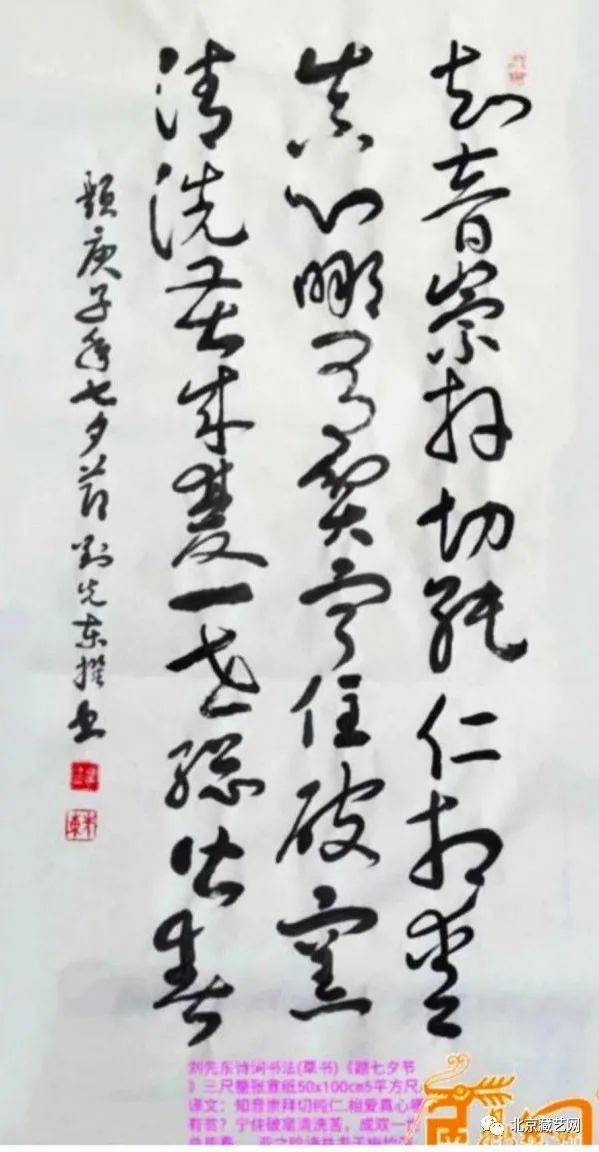 知音崇拜切純仁相愛
真心哪有貧寧住破窯
清洗苦成雙一世總皆春
題庚子年七夕節劉先東撰書
刘先东诗词书法(草书)《题七夕节
》三尺整张宣纸50x100cm5平方尺
译文：知音崇拜切纯仁.相爱真心哪
有贫？宁住破窑清洗苦，成双一
北京藏艺网